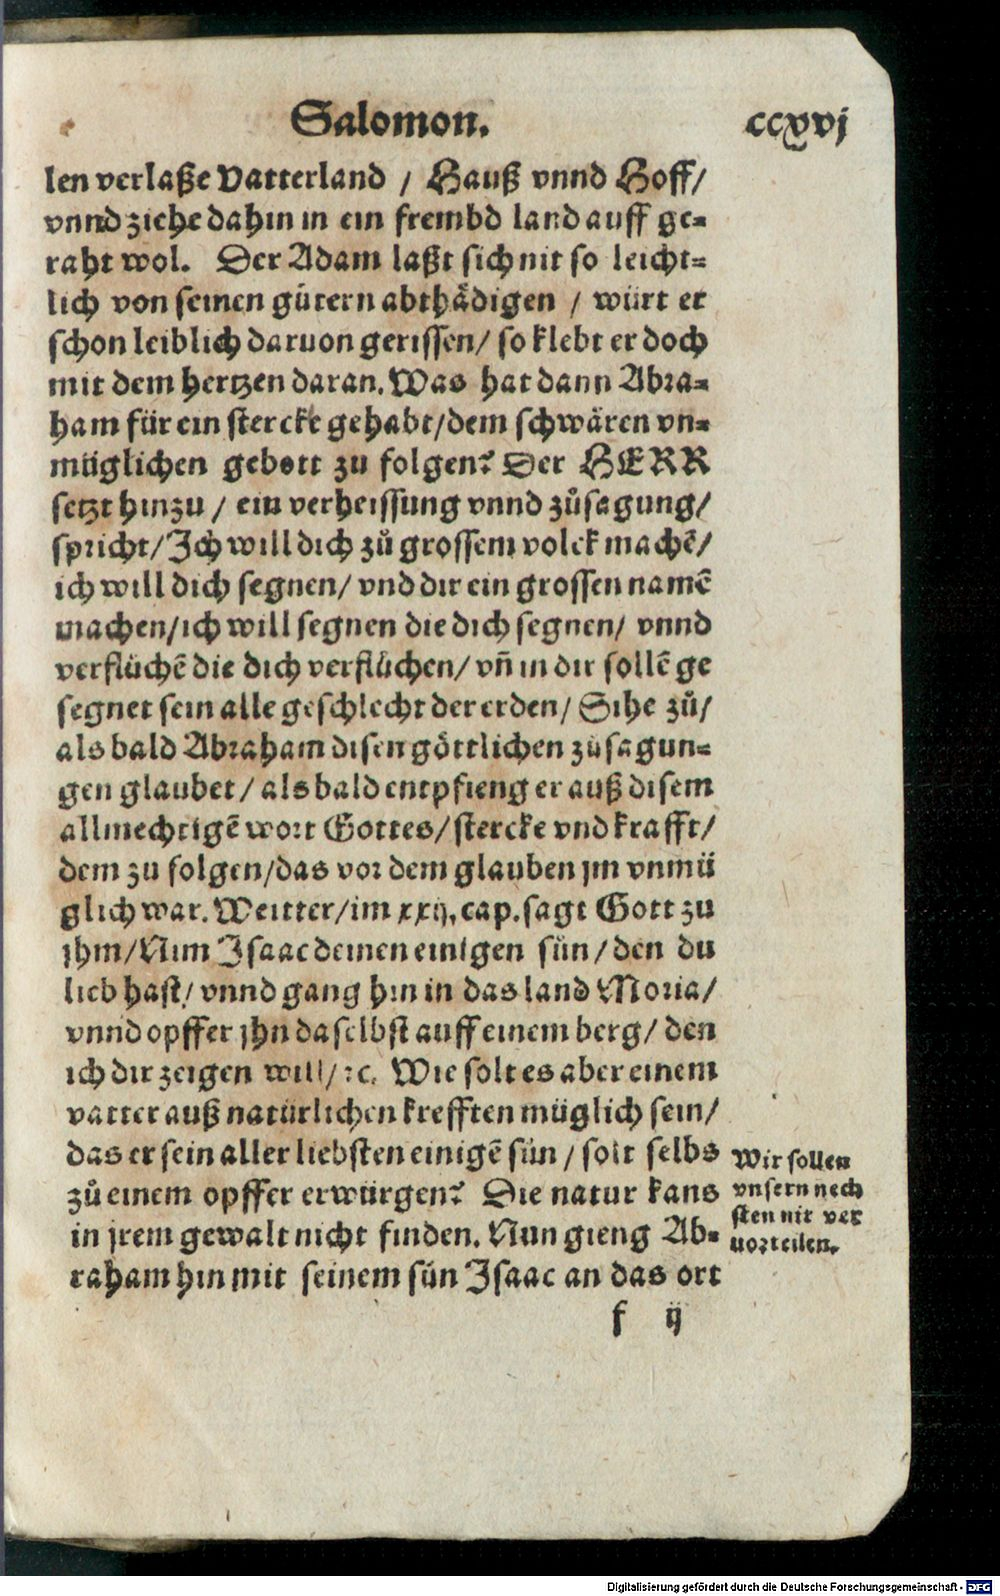 Salomon. ccxvj
len verlaße Vatterland / Hauß vnnd Hoff/
vnnd ziehe dahin in ein frembd land auff ge-
raht wol. Der Adam laßt sich nit so leicht-
lich von seinen gůtern abthådigen / würt er
schon leiblich daruon gerissen/ so klebt er doch
mit dem hertzen daran. Was hat dann Abra-
ham für ein stercke gehabt/dem schwåren vn-
müglichen gebott zu folgen? Der HERR
setzt hinzu / ein verheissung vnnd zůsagung/
spricht/Ich will dich zů grossem volck machē/
ich will dich segnen/ vnd dir ein grossen namē
machen/ich will segnen die dich segnen/ vnnd
verflůchē die dich verflůchen/ vñ in dir sollē ge
segnet sein alle geschlecht der erden/ Sihe zů/
als bald Abraham disen göttlichen zůsagun-
gen glaubet/ als bald entpfieng er auß disem
allmechtigē wort Gottes/stercke vnd krafft/
dem zu folgen/das vor dem glauben jm vnmü
glich war. Weitter/im xxij. cap. sagt Gott zu
jhm/Nim Isaac deinen einigen sün/den du
lieb hast/ vnnd gang hin in das land Moria/
vnnd opffer jhn daselbst auff einem berg/ den
ich dir zeigen will/ꝛc. Wie solt es aber einem
vatter auß natürlichen krefften müglich sein/
das er sein aller liebsten einigē sün/ solt selbs
zů einem opffer erwürgen? Die natur kans
in jrem gewalt nicht finden. Nun gieng Ab-
raham hin mit seinem sün Isaac an das ort
Wir sollen
vnsern nech
sten nit ver
uorteilen.
f ij
Digitalisierung gefördert durch die Deutsche Forschungsgemeinschaft - DFG